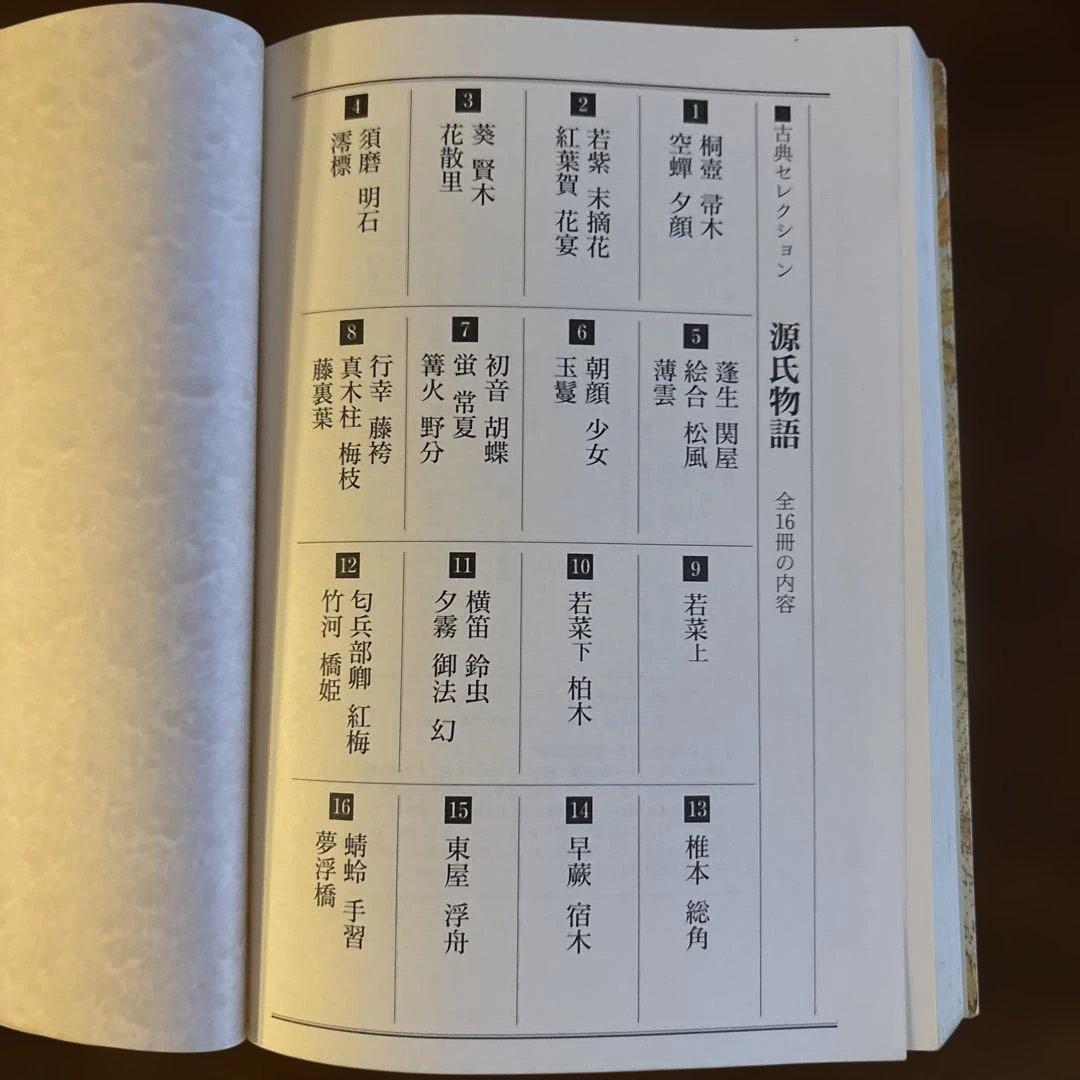 ■古典セレクション 源氏物語 全16冊の内容
1
桐壺 帚木
空蟬 夕顔
2
若紫 末摘花
紅葉賀 花宴
3
葵 賢木
花散里
4
須磨 明石
澪標
5
蓬生 関屋
絵合 松風
薄雲
6
朝顔 少女
玉鬘
7
初音 胡蝶
蛍 常夏
篝火 野分
8
行幸 藤袴
真木柱 梅枝
藤裏葉
9
若菜上
10
若菜下 柏木
11
横笛 鈴虫
夕霧 御法 幻
12
匂兵部卿 紅梅
竹河 橋姫
13
椎本 総角
14
早蕨 宿木
15
東屋 浮舟
16
蜻蛉 手習
夢浮橋